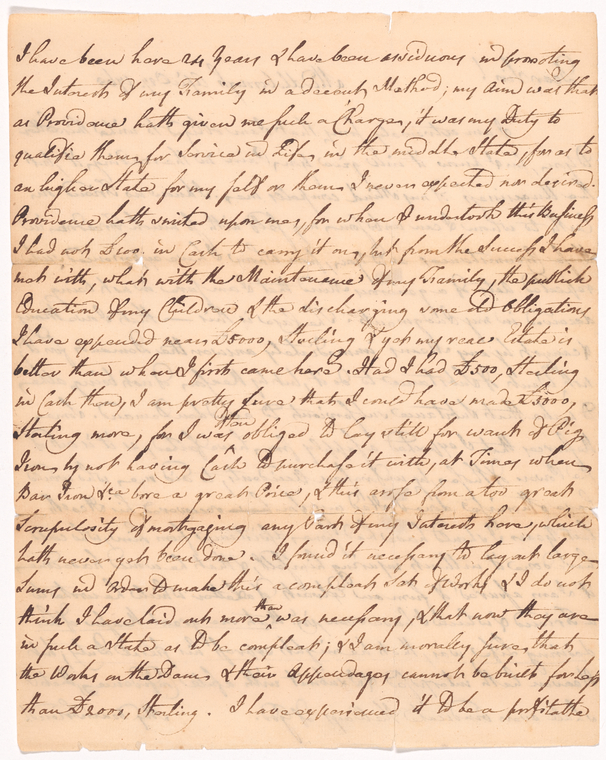 I have been here 24 Years & have been assiduous in promoting
the Interest of my Family in a decent Method; my aim was that
as Providence hath given me such a Charge, it was my Duty to
qualifie them for Service in Life, in the middle State, for as to
an higher State for my self or them I never expected nor desired.
Providence hath smiled upon me, for when I undertook this Business
I had not £100. in Cash to carry it on, but from the Success I have
met with, what with the Maintenance of my Family, the publick
Education of my Children & the discharging some old Obligations
I have expended near £5000, Sterling & yet my real Estate is
better than when I first came here. Had I had £500, Sterling
in Cash then, I am pretty sure that I could have made £3000,
Sterling more, for I was often obliged to lay still for want of Pig
Iron, by not having Cash to purchase it with, at Times when
Bar Iron &ca bore a great Price, & this arose from a too great
Scrupulosity of mortgaging any Part of my Interest here, which
hath never yet been done. I found it necessary to lay out large
Sums in Order to make this a compleat Set of Works & I do not
think I have laid out more than was necessary, & that now they are
in such a State as to be compleat; & I am morally sure, that
the Works on the Dam & their Appendages cannot be built for less
than £2000, Sterling. I have experienced it to be a profitable